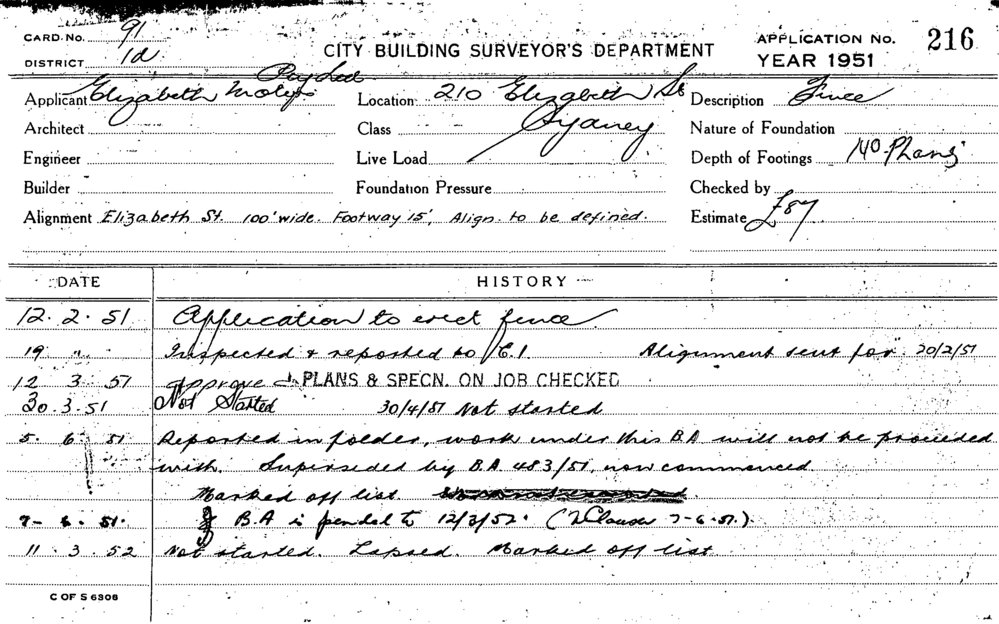 CARD No. 91
DISTRICT 1d
CITY BUILDING SURVEYOR'S DEPARTMENT
APPLICATION No. 216
YEAR 1951
Pty Ltd
Applicant Elizabeth
Location 210 Elizabeth St
Sydney
Description Fence
Architect
Class
Nature of Foundation
Engineer
Live Load
Depth of Footings No Plans
Builder
Foundation Pressure
Checked by
Alignment Elizabeth St. 100' wide. Footway 15', Align. to be defined.
Estimate £87
DATE HISTORY
12. 2. 51 Application to erect fence
19 " " Inspected & reported to C.I Alignment sent for 20/2/51
12 3. 51 approve PLANS & SPECN. ON JOB CHECKED
30. 3. 51 Not Started 30/4/51 Not started
5. 6. 51 Reported in folder, work under this B.A will not be proceeded
with. Superseded by B.A 483/51, now commenced.
Marked off list
7- 6. 51. B.A is to 12/3/52. ( 7-6-51.).
11. 3. 52 Not started. Lapsed. Marked off list
C OF S 6306